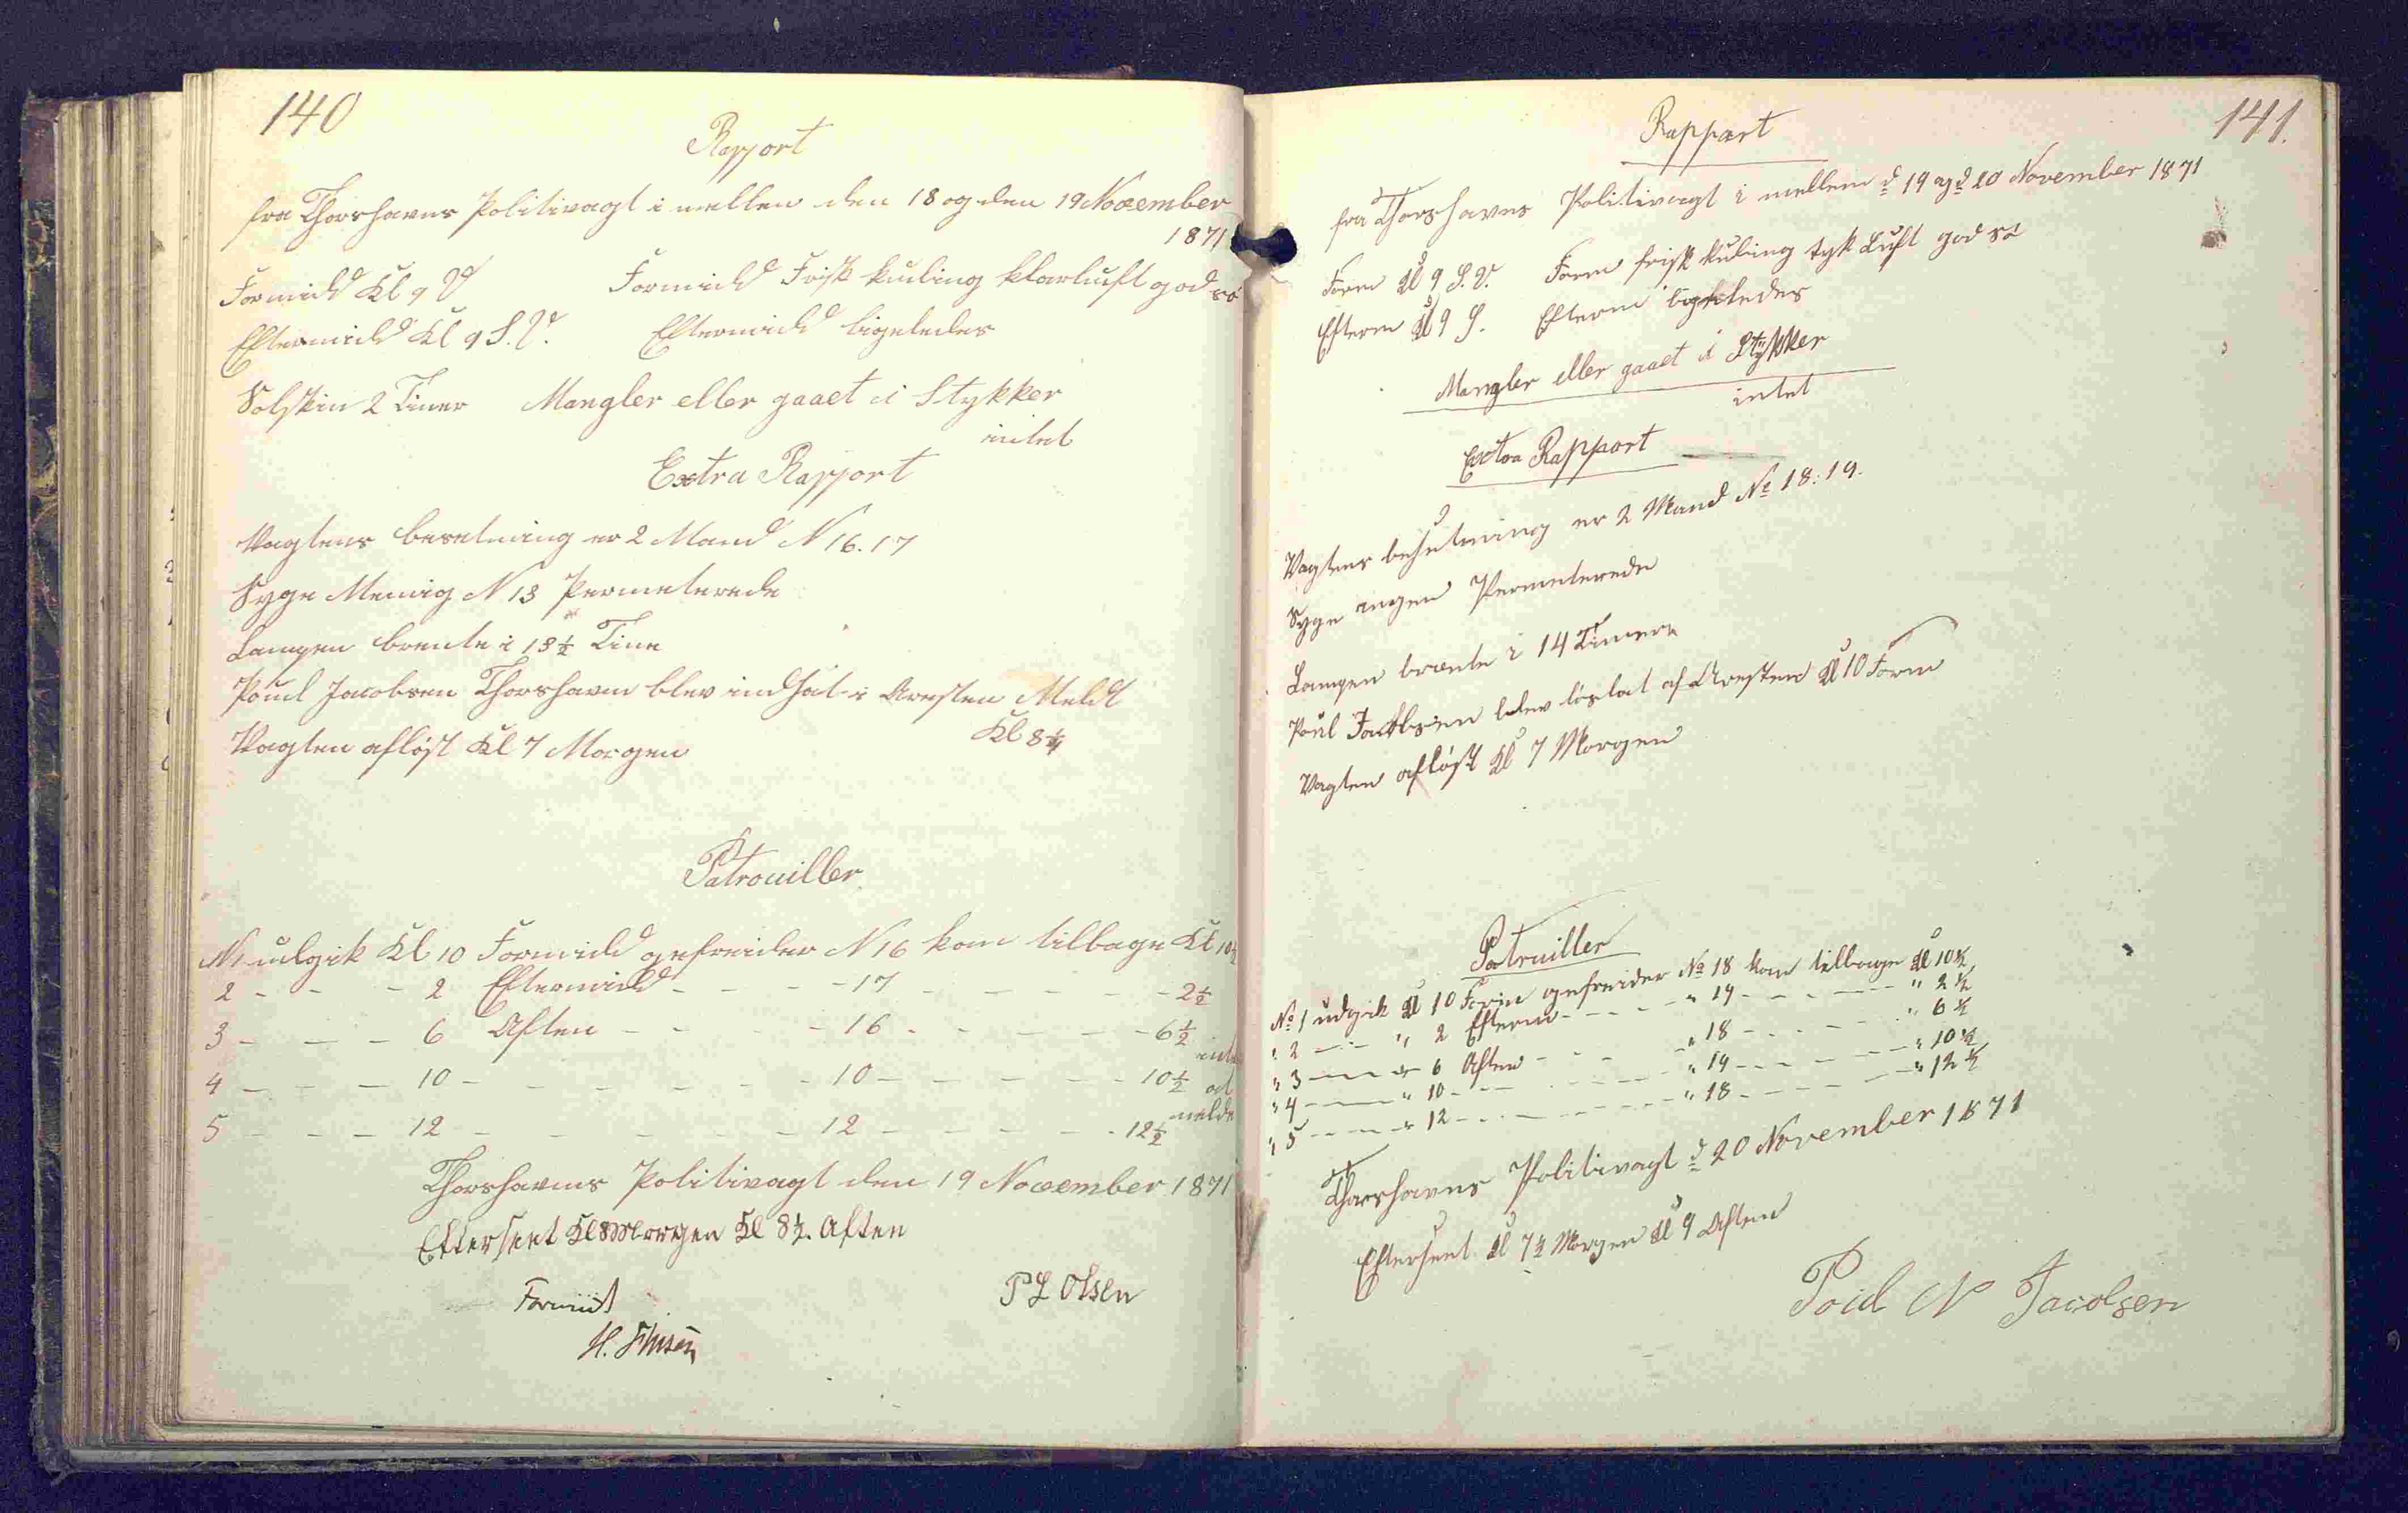 140
Rapport
fra Thorshavns Politivagt i mellem den 18 og den 19 November
1871
Formidd Kl 9 V Formidd Frisk kuling klarluft god sö
Eftermidd Kl 9 S.V. Eftermidd ligeledes
Solskin 2 Timer Mangler eller gaaet i Stykker
intet
Extra Rapport
Vagtens besetning er 2 Mand N 16.17
Syge Menig N 13 Permeterede
Lampen brente i 13½ Time
Poul Jacobsen Thorshavn blev indsat i Aresten Meldt
Kl 8¼
Vagten afløst Kl 7 Morgen
Patrouiller
N1 udgik Kl 10 Formidd gefreider N 16 kom tilbage Kl 10½
2 - - - 2 Eftermidd - - - 17 - - - - - 2½
3 - - - 6 Aften - - - 16 - - - - - 6½
4 - - - 10 - - - - - - 10 - - - - - 10½
5 - - - 12 - - - - - - 12 - - - - - 12½
intet
at
melde
Thorshavns Politivagt den 19 November 1871
Efterseet Kl 8 Morgen Kl 8½. Aften
P L Olsen
H.
141.
Rapport
fra Thorshavns Politivagt i mellem d 19 og d 20 November 1871
Form Kl 9 S.V. Form frisk kuling tyk Luft god sö
Efterm Kl 9 S. Efterm ligeledes
Mangler eller gaaet i Stykker
intet
Extra Rapport
Vagtens besetning er 2 Mand No 18:19.
Syge ingen Permeterede
Lampen brente i 14 Timer
Poul Jacobsen blev löslat af Aresten Kl 10 Form
Vagten afløst Kl 7 Morgen
Patruiller
No 1 udgik Kl 10 Form gefreider No 18 kom tilbage Kl 10½
" 2 - - " 2 Efterm - - - " 19 - - - - " 2½
" 3 - - " 6 Aften - - - " 18 - - - - " 6½
" 4 - - " 10 - - - - " 19 - - - - " 10½
" 5 - - " 12 - - - - " 18 - - - - " 12½
Thorshavns Politivagt d 20 November 1871
Efterseet Kl 7½ Morgen Kl 9 Aften
Poul N Jacobsen